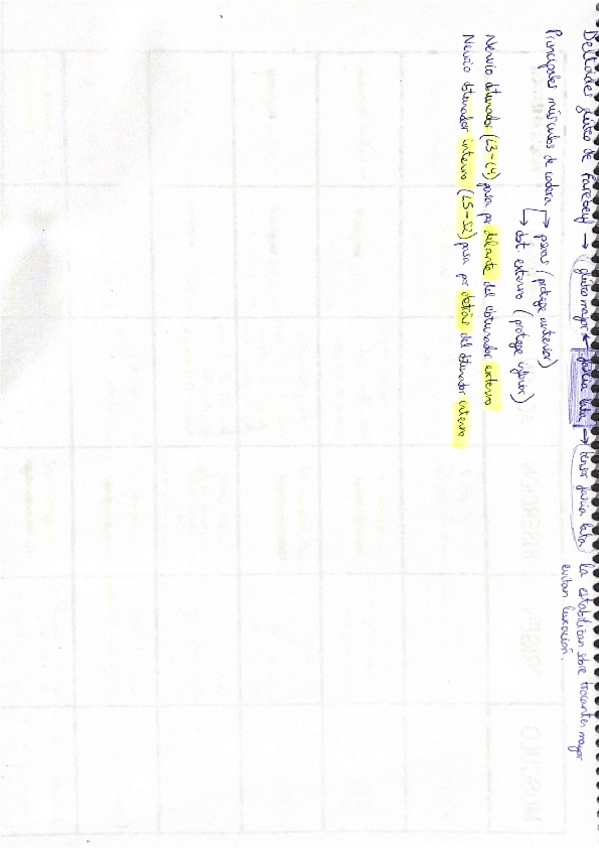 Deltoides glúteo de Farebeuf → glúteo mayor ← fascia lata → tensor fascia lata la estabilizan sobre trocanter mayor
evitan luxación.
Principales músculos de cadera → psoas (protege anterior)
→ obt. externo (protege inferior)
Nervio obturador (L3-L4) pasa por delante del obturador externo
Nervio obturador interno (L5-S2) pasa por detrás del obturador interno
INSERCIÓN
ORIGEN
MÚSCULO